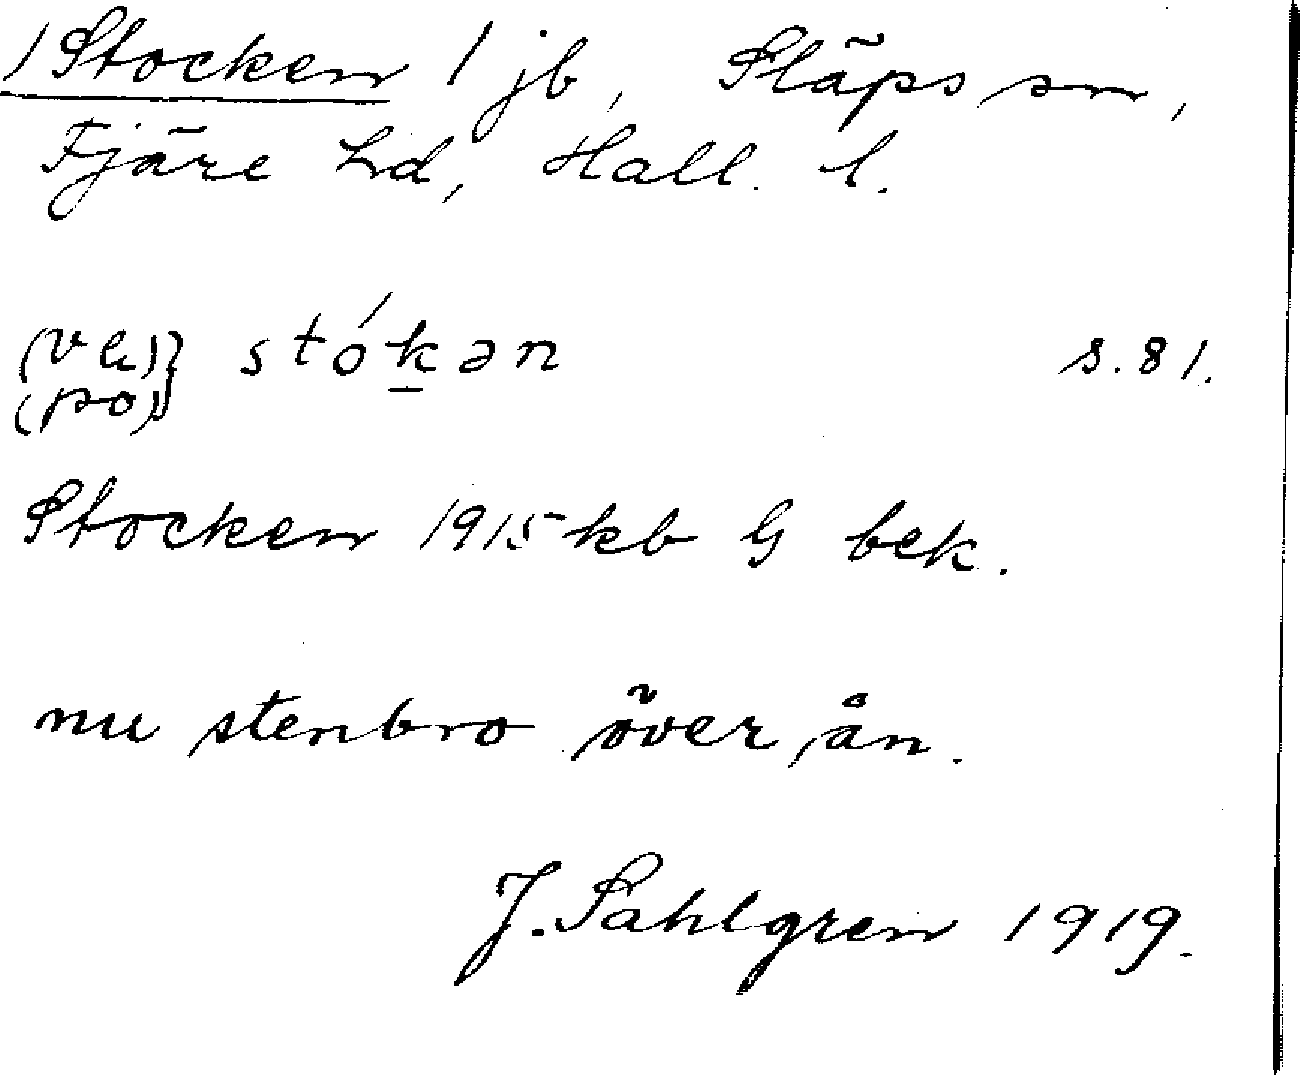 /Stocken/ jb, Släps sn,
Fjäre hd, Hall. l.
(va)} stók̲ən s. 81.
(po)}
Stocken 1915 kb G bek.
nu stenbro över ån.
J. Sahlgren 1919.